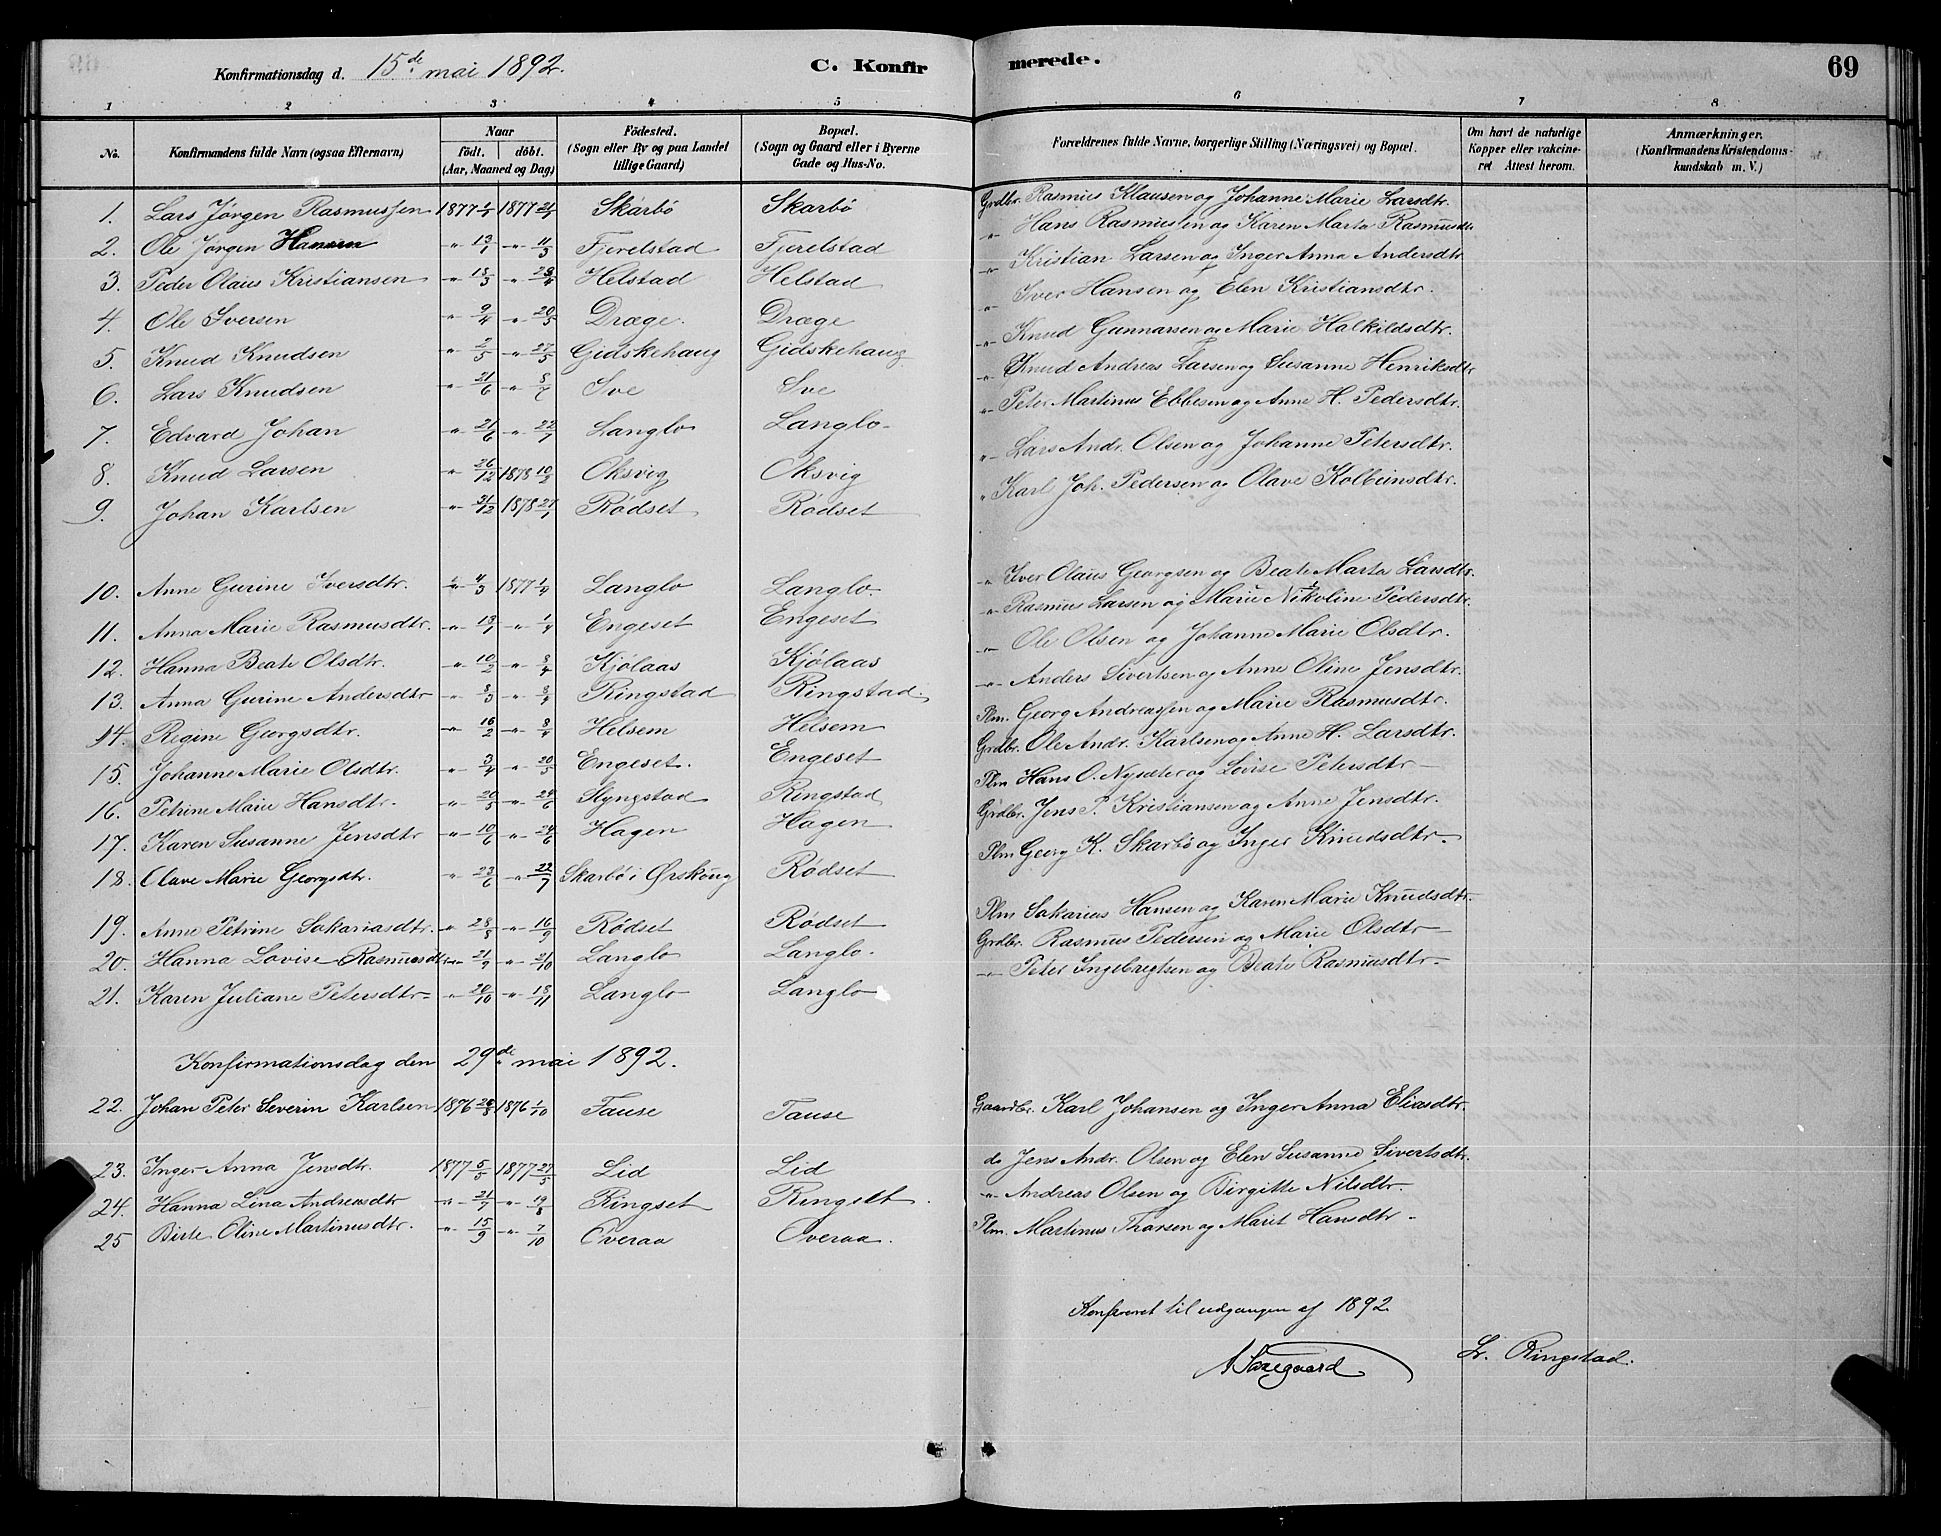 Konfirmationsdag d. 15de mai 1892. C. Konfirmerede. 69
1 2 3 4 5 6 7 8
No. Konfirmandens fulde Navn (ogsaa Efternavn) Naar født. døbt. (Aar, Maaned og Dag) Födested. (Sogn eller By og paa Landet tillige Gaard) Bopæl. (Sogn og Gaard eller i Byerne Gade og Hus-No. Forældrenes fulde Navne, borgerlige Stilling (Næringsvei) og Bopæl. Om havt de naturlige Kopper eller vakcineret Attest herom. Anmærkninger. (Konfirmandens Kristendomskundskab m. V.)
1. Lars Jørgen Rasmussen 1877 1877 Skarbö Skarbö Grdbr. Rasmus Klausen og Johanne Marie Larsdtr.
2. Ole Jørgen Hansen " 13/1 " 11/3 Fjerelstad Fjerelstad " Hans Rasmussen og Karen Marta Rasmusdtr
3. Peder Olaus Kristiansen " 18/3 " Helstad Helstad " Kristian Larsen og Inger Anna Andersdtr
4. Ole Iversen " 9/4 " 20/5 Dræge. Dræge " Iver Hansen og Elen Kristiansdtr.
5. Knud Knudsen " 2/5 " 27/5 Gidskehaug Gidskehaug " Knud Gunnarsen og Marie Halkildsdtr.
6. Lars Knudsen " 21/6 " 8/7 Sve Sve " Knud Andreas Larsen og Susanne Henriksdtr
7. Edvard Johan " 21/6 " 22/7 Langlo Langlo " Peter Martinus Ebbesen og Anne H. Pedersdtr.
8. Knud Larsen " 26/12 1878 10/2 Oksvig Oksvig " Lars Andr. Olsen og Johanne Petersdtr.
9. Johan Karlsen " 21/12 1878 27/1 Rødset Rødset " Karl Joh. Pedersen og Olave Kolbeinsdtr.
10. Anne Gurine Iversdtr. " 4/3 1877 1/4 Langlo Langlo " Iver Olaus Georgsen og Beate Marta Larsdtr.
11. Anna Marie Rasmusdtr. " 13/1 " 1/4 Engeset Engeset " Rasmus Larsen og Marie Nikoline Pedersdtr.
12. Hanna Beate Olsdtr. " 10/2 " 8/4 Kjölaas Kjölaas " Ole Olsen og Johanne Marie Olsdtr.
13. Anna Gurine Andersdtr " 8/3 " 8/4 Ringstad Ringstad " Anders Sivertsen og Anne Oline Jensdtr.
14. Regine Georgsdtr. " 16/2 " 8/4 Helsem Helsem Plm. Georg Andreassen og Marie Rasmusdtr.
15. Johanne Marie Olsdtr. " 3/4 " 20/5 Engeset. Engeset Grdbr. Ole Andr. Karlsen og Anne H. Larsdtr.
16. Petrine Marie Hansdtr. " 20/5 " 24/6 Slyngstad Ringstad Plm Hans O. Nysæter og Lovise Petersdtr
17. Karen Susanne Jensdtr " 10/6 " 24/6 Hagen Hagen Grdbr. Jens P. Kristiansen og Anne Jensdtr.
18. Olave Marie Georgsdtr. " 23/6 " 22/7 Skarbö i Ørskoug Rødset Plm Georg K. Skarbö og Inger Knudsdtr
19. Anne Petrine Sakariasdtr. " 28/8 " 16/9 Rødset Rødset Plm Sakarias Hansen og Karen Marie Knudsdtr.
20. Hanna Lovise Rasmusdtr " 21/9 " 21/10 Langlo Langlo. Grdbr. Rasmus Pedersen og Marie Olsdtr
21. Karen Juliane Petersdtr " 20/10 " 18/11 Langlo Langlo " Peter Ingebrigtsen og Beate Rasmusdtr
Konfirmationsdag den 29de mai 1892.
22. Johan Peter Severin Karlsen 1876 1876 1/10 Tause Tause Gaardbr. Karl Johansen og Inger Anna Eliasdtr.
23. Inger Anna Jensdtr. 1877 5/5 1877 27/5 Lid Lid do Jens Andr. Olsen og Elen Susanne Sivertsdtr.
24. Hanna Lina Andreasdtr " 21/7 " 19/8 Ringset Ringset " Andreas Olsen og Birgitte Nilsdtr.
25 Birte Oline Martinusdtr. " 15/9 " 7/10 Overaa Overaa. Plm. Martinus Thorsen og Marit Hansdtr
Konfereret til udgangen af 1892.
L. Ringstad.